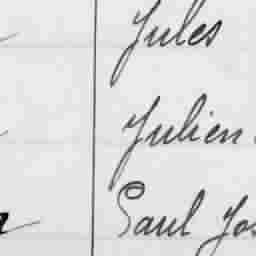 Jules
Julien
Paul Jos